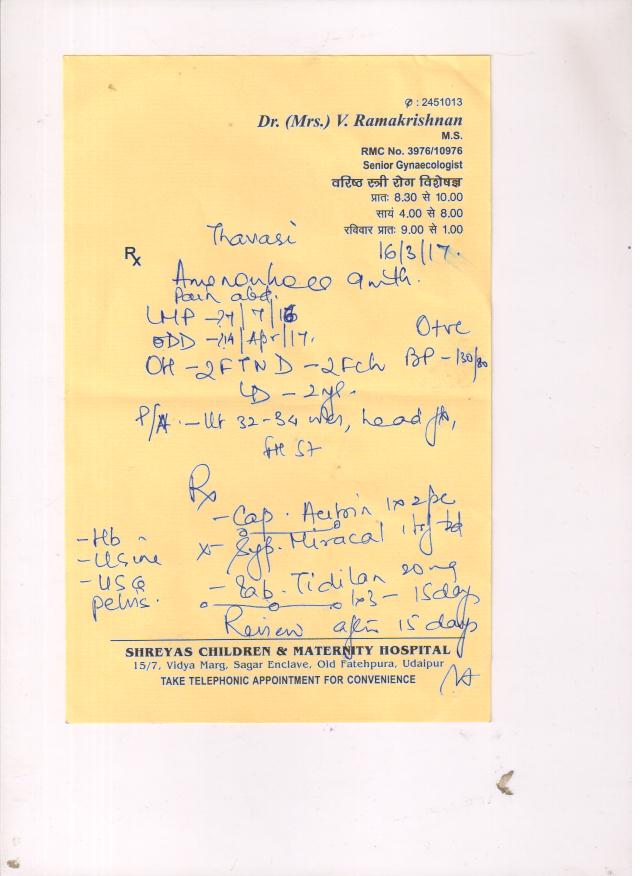 ✆ : 2451013
Dr. (Mrs.) V. Ramakrishnan
M.S.
RMC No. 3976/10976
Senior Gynaecologist
वरिष्ठ स्त्री रोग विशेषज्ञ
प्रातः 8.30 से 10.00
सायं 4.00 से 8.00
रविवार प्रातः 9.00 से 1.00
Thavasi
16/3/17.
Rx
Pain abd.
LMP - /7/16
O+ve
EDD - /Apr/17.
BP - 130/80
OH - 2FTND - 2Fch
LD - 2yr.
P/A - Ut 32-34 wks, head
Rx
- Cap.
- Hb
- Syp. Miracal
- Urine
- USG
- Tab. Tidilan 20mg
pelvis.
1x3 - 15 days
Review after 15 days
SHREYAS CHILDREN & MATERNITY HOSPITAL
15/7, Vidya Marg, Sagar Enclave, Old Fatehpura, Udaipur
TAKE TELEPHONIC APPOINTMENT FOR CONVENIENCE